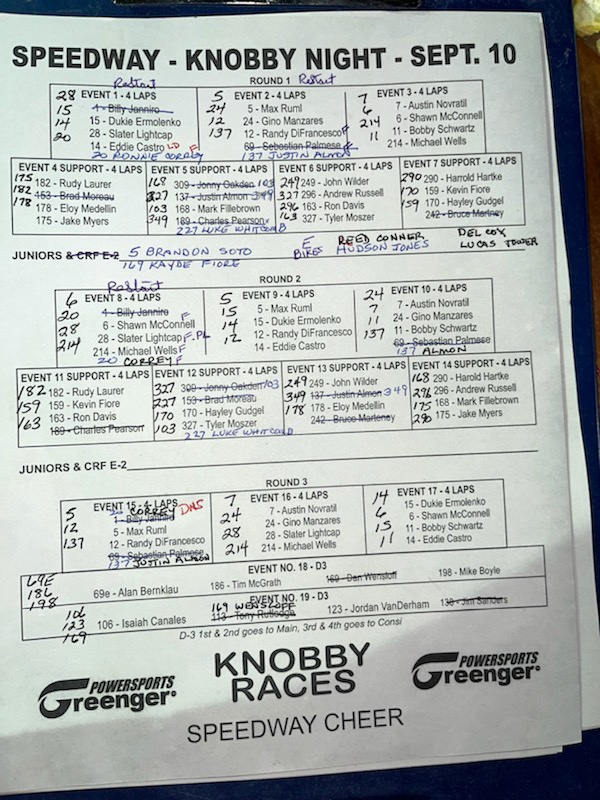 SPEEDWAY - KNOBBY NIGHT - SEPT. 10
Restart ROUND 1 Restart
28 EVENT 1 - 4 LAPS
15 1 - Billy Janniro
14 15 - Dukie Ermolenko
20 28 - Slater Lightcap
14 - Eddie Castro LD F
20 RONNIE CORREY
5 EVENT 2 - 4 LAPS
24 5 - Max Ruml
12 24 - Gino Manzares
137 12 - Randy DiFrancesco
69 - Sebastian Palmese
137 JUSTIN ALMON
7 EVENT 3 - 4 LAPS
6 7 - Austin Novratil
214 6 - Shawn McConnell
11 11 - Bobby Schwartz
214 - Michael Wells
EVENT 4 SUPPORT - 4 LAPS
175 182 - Rudy Laurer
182 153 - Brad Moreau
178 178 - Eloy Medellin
175 - Jake Myers
EVENT 5 SUPPORT - 4 LAPS
168 309 - Jonny Oakden 103
327 137 - Justin Almon 349
103 168 - Mark Fillebrown
349 189 - Charles Pearson
227 LUKE WHITCOMB
EVENT 6 SUPPORT - 4 LAPS
249 249 - John Wilder
327 296 - Andrew Russell
296 163 - Ron Davis
163 327 - Tyler Moszer
EVENT 7 SUPPORT - 4 LAPS
290 290 - Harold Hartke
170 159 - Kevin Fiore
159 170 - Hayley Gudgel
242 - Bruce Marteney
JUNIORS & CRF E-2 5 BRANDON SOTO E BIKES REED CONNER DEL COX
169 KAYDE FIORE HUDSON JONES LUCAS
ROUND 2
Restart
6 EVENT 8 - 4 LAPS
20 1 - Billy Janniro
28 6 - Shawn McConnell F
214 28 - Slater Lightcap F-PL
214 - Michael Wells F
20 CORREY F
5 EVENT 9 - 4 LAPS
15 5 - Max Ruml
14 15 - Dukie Ermolenko
12 12 - Randy DiFrancesco
14 - Eddie Castro
24 EVENT 10 - 4 LAPS
7 7 - Austin Novratil
11 24 - Gino Manzares
137 11 - Bobby Schwartz
69 - Sebastian Palmese
137 ALMON
EVENT 11 SUPPORT - 4 LAPS
182 182 - Rudy Laurer
159 159 - Kevin Fiore
163 163 - Ron Davis
189 - Charles Pearson
EVENT 12 SUPPORT - 4 LAPS
327 309 - Jonny Oakden 103
227 153 - Brad Moreau
170 170 - Hayley Gudgel
103 327 - Tyler Moszer
227 LUKE WHITCOMB
EVENT 13 SUPPORT - 4 LAPS
249 249 - John Wilder
349 137 - Justin Almon 349
178 178 - Eloy Medellin
242 - Bruce Marteney
EVENT 14 SUPPORT - 4 LAPS
168 290 - Harold Hartke
296 296 - Andrew Russell
175 168 - Mark Fillebrown
290 175 - Jake Myers
JUNIORS & CRF E-2
ROUND 3
EVENT 15 - 4 LAPS
20 CORREY DNS
5 1 - Billy Janniro
12 5 - Max Ruml
137 12 - Randy DiFrancesco
69 - Sebastian Palmese
137 JUSTIN ALMON
7 EVENT 16 - 4 LAPS
24 7 - Austin Novratil
28 24 - Gino Manzares
214 28 - Slater Lightcap
214 - Michael Wells
14 EVENT 17 - 4 LAPS
6 15 - Dukie Ermolenko
15 6 - Shawn McConnell
11 11 - Bobby Schwartz
14 - Eddie Castro
EVENT NO. 18 - D3
69E 186 198
69e - Alan Bernklau 186 - Tim McGrath 169 - Dan Wensloff 198 - Mike Boyle
EVENT NO. 19 - D3
106 123 169
169 WENSLOFF
106 - Isaiah Canales 113 - Tony Rutledge 123 - Jordan VanDerham 138 - Jim Sanders
D-3 1st & 2nd goes to Main, 3rd & 4th goes to Consi
POWERSPORTS
Greenger
KNOBBY
RACES
POWERSPORTS
Greenger
SPEEDWAY CHEER